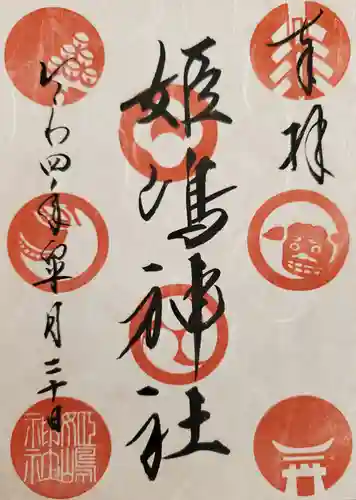 奉拝
姫嶋神社
れいわ四年皐月二十日
姫嶋神社